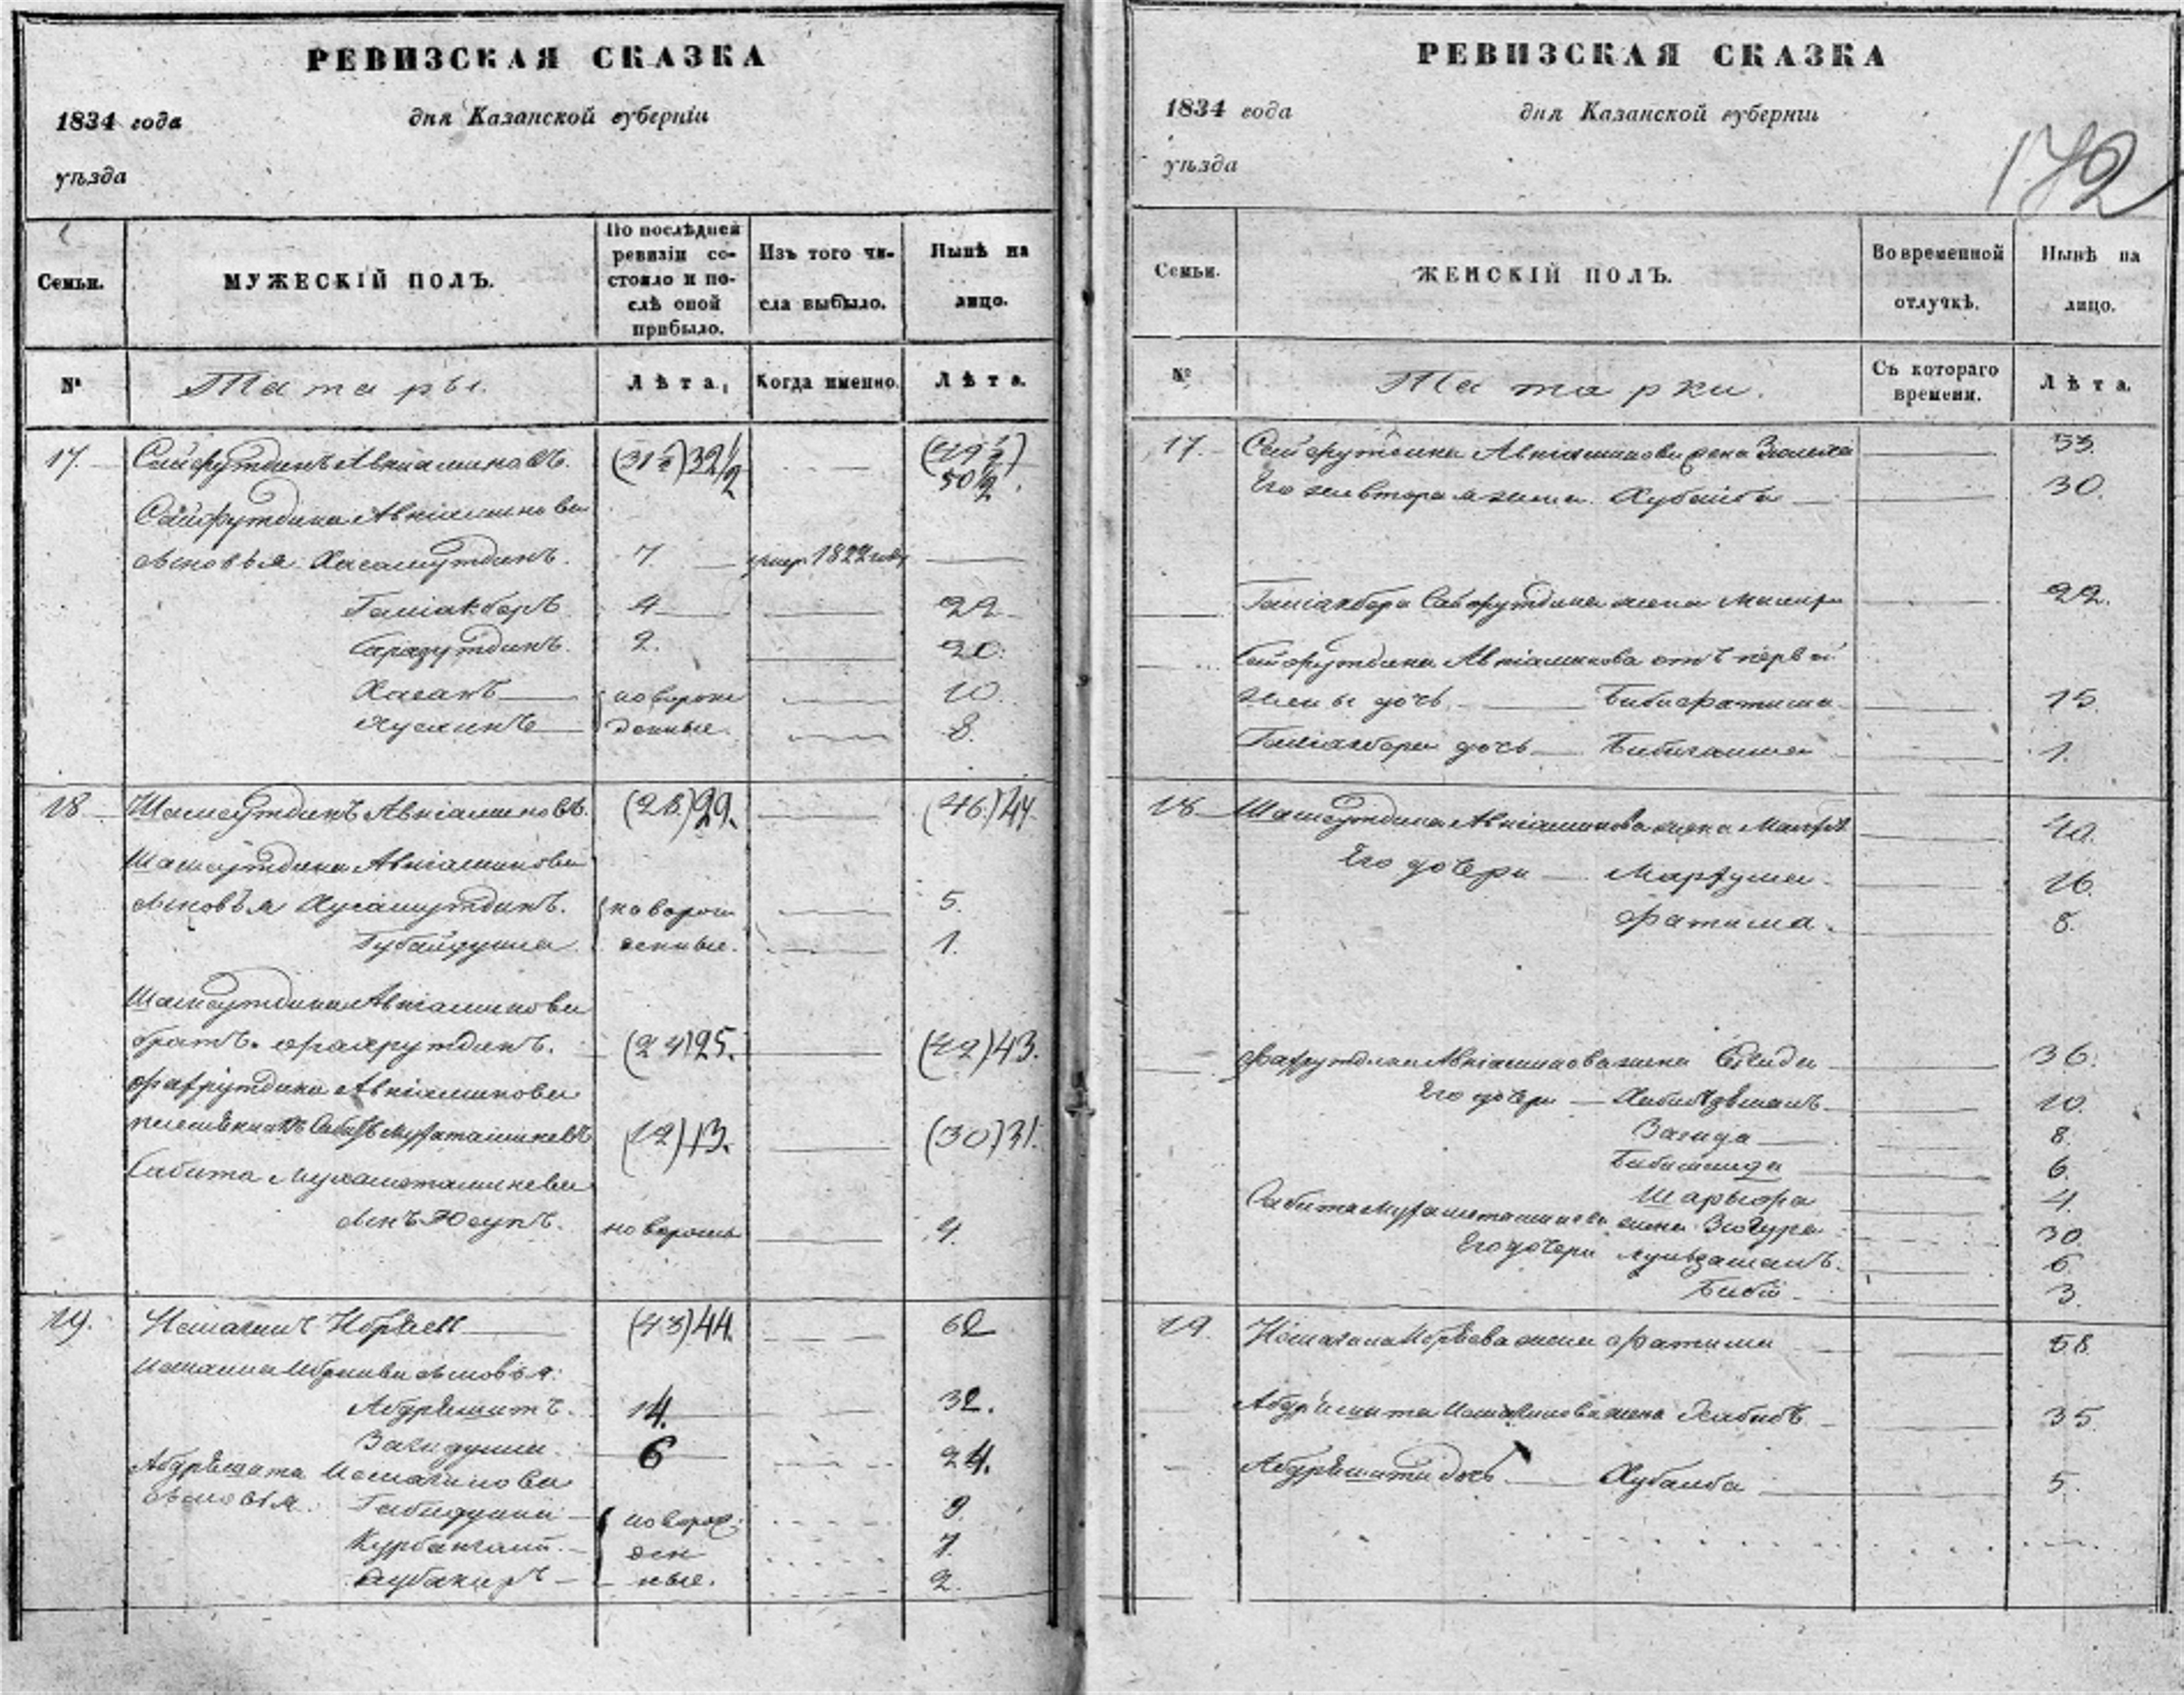 РЕВИЗСКАЯ СКАЗКА
1834 года дня Казанской губерніи
уѣзда
Семьи.
МУЖЕСКІЙ ПОЛЪ.
По послѣдней
ревизіи со-
стояло и по-
слѣ оной
прибыло.
Изъ того чи-
сла выбыло.
Нынѣ на
лицо.
№
Татары.
Лѣта,
Когда именно.
Лѣта.
17. Сайфутдинъ Авкіаминовъ. (31½) 32½ (49½)
50½.
Сайфутдина Авкіаминова
сыновья Хисамутдинъ. 7 умер. 1822 году
Галіакберъ 4 22
Сиразутдинъ. 2. 20.
Хасанъ новорож 10.
Хусаинъ денные. 8.
18. Шамсутдинъ Авкіаминовъ. (28.) 29. (46.) 47.
Шамсутдина Авкіаминова
сыновья Хусамутдинъ. новорож 5.
Губайдулла денные. 1.
Шамсутдина Авкіаминова
братъ. Фахрутдинъ. (24) 25. (42) 43.
Фахрутдина Авкіаминова
племянникъ Сабитъ (12) 13. (30) 31.
Сабита
сынъ Юсупъ. новорожд 4.
19. Исмагилъ Ибряевъ (43) 44. 62
сыновья:
Абдрѣшитъ. 14. 32.
Загидулла. 6 24.
Абдрѣшита Исмагилова
сыновья. Габидулла новорож 9.
Курбангали. ден 7.
Аубакиръ ные. 2.
РЕВИЗСКАЯ СКАЗКА
1834 года дня Казанской губерніи
уѣзда
172
Семьи.
ЖЕНСКІЙ ПОЛЪ.
Во временной
отлучкѣ.
Нынѣ на
лицо.
№
Татарки.
Съ котораго
времени.
Лѣта.
17. Сайфутдина Авкіаминова жена Зюлейха 53.
Его же вторая жена Хубайба 30.
Галіакбера Сайфутдинова жена 22.
Сайфутдина Авкіаминова отъ первой
жены дочь Бибифатима 15.
Галіакбера дочь 1.
18. Шамсутдина Авкіаминова жена 40.
Его дочери 16.
Фатима. 8.
Фахрутдина Авкіаминова жена 36.
Его дочери 10.
Загида 8.
6.
4.
Сабита жена 30.
Его дочери 6.
Биби 3.
19. Исмагила Ибряева жена Фатима 58.
Абдрѣшита Исмагилова жена 35.
Абдрѣшита дочь Хубайба 5.